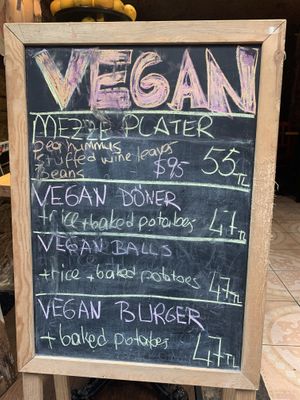 VEGAN
MEZZE PLATER
pea hummus
stuffed wine leaves
beans $95 55TL
VEGAN DÖNER
+rice +baked potatoes 47TL
VEGAN BALLS
+rice +baked potatoes 47TL
VEGAN BURGER
+ baked potatoes 47TL